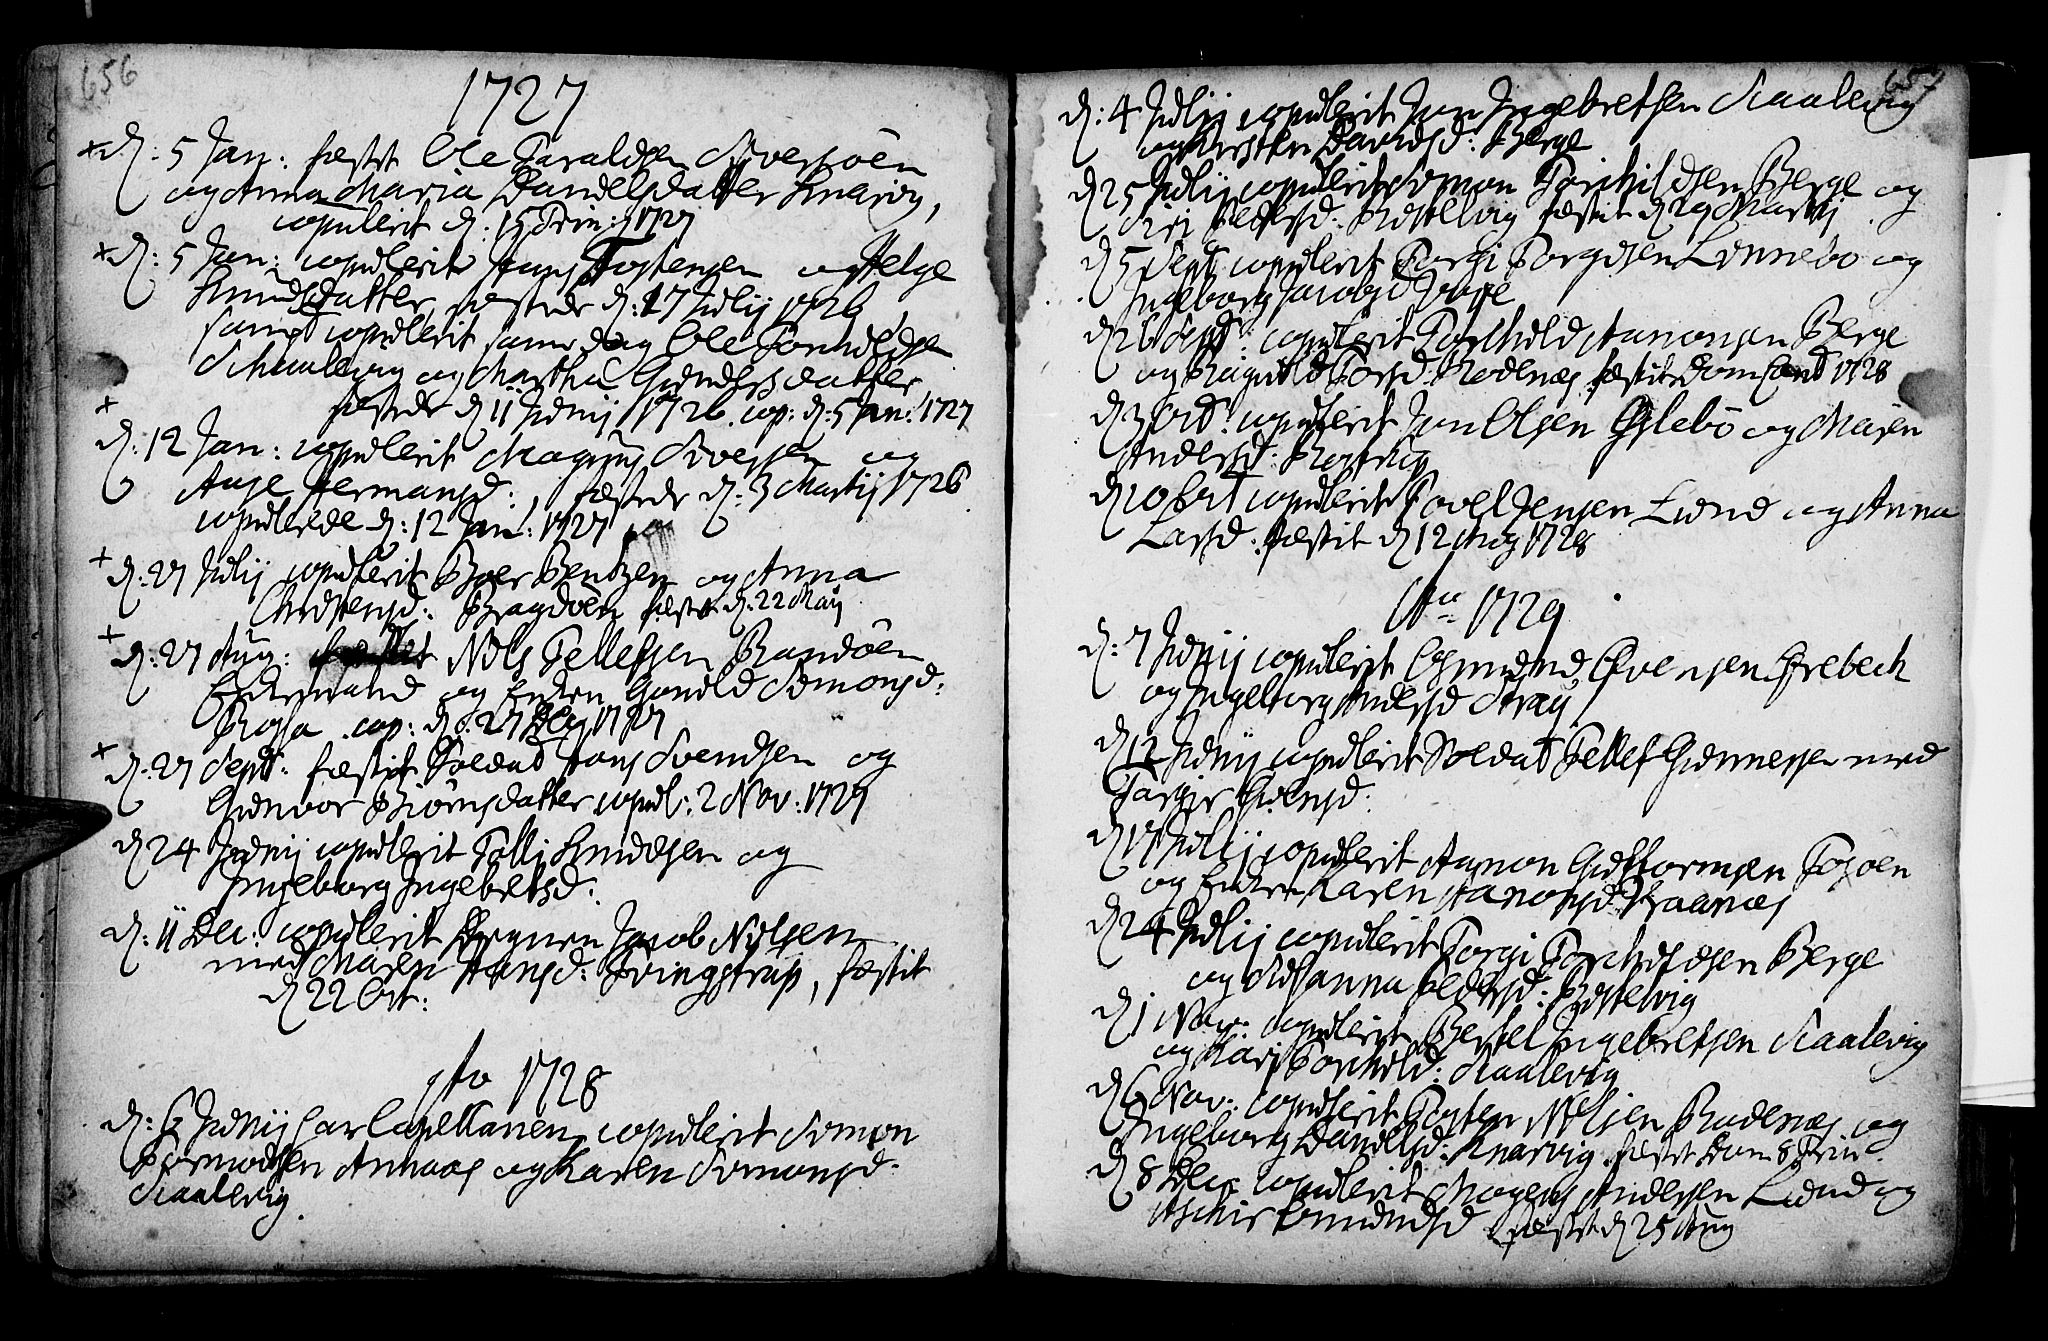 656
1727
+ d: 5 Jan: fæstet Ole Taraldsen
og Anna Maria Danielsdatter Knarvig,
copulerit d: 15 Trin: 1727
+ d: 5 Jan: copulerit Hans Tostensen og Helge
Knudsdatter, fæstede d: 17 Julij 1726
samt copulerit samme dag Ole
Schaalevig og Martha Gundersdatter
fæstede d 11 Junij 1726. cop: d: 5 Jan: 1727
+
d: 12 Jan: copulerit Magnus Svensen og
Aase Hermansd: fæstede d: 3 Martij 1726
copulerede d: 12 Jan: 1727
+ d: 27 Julij copulerit Boer Bentzen og Anna
Christensd: Bragdøen fæstet d: 22 Maij
+ d: 27 Aug: Nils Tellefsen Randøen
Enkemand og Enken Gunild Simonsd:
Rossa cop: d: 27 1727
+ d: 27 Sept: fæstit Soldat Hans Svendsen og
Gunvor Biørnsdatter copul: 2 Nov: 1727
d 24 Junij copulerit Talli Knudsen og
Ingeborg Ingebretsd:
d: 11 Dec: copulerit Jacob Nilsen
med Maren Hansd: Svingstrup, fæstit
d 22 Oct:
Ao 1728
d: 6 Junij Car Capellanen copulerit Simon
Tormodsen Annaas og Karen Simonsd:
Skaalevig.
657
d: 4 Julij copulerit Jan Ingebretsen Skaalevig
og Kirsten Davidsd: Berge
d 25 Julij copulerit Simon Torchildsen Berge og
Siri Pedersd: fæstit d 29 Martij
d 5 Sept copulerit Torgi Torgisen Lønnebo og
Ingeborg Jacobsd
d 26 Sept: copulerit Torchild Aanonsen Berge
og Ragnild Torsd: Rodenæs fæstit 1728
d 3 Oct: copulerit Jan Olsen og Maren
Andersd:
d 10 Oct copulerit Povel Jensen Lund og Anna
Larsd: fæstit d 12 Aug 1728
Ao 1729
d: 7 Junij copulerit Osmund Evensen Ørebech
og Ingeborg Andersd Straij
d 12 Junij copulerit Soldat Tellef Gunnessen med
Targir
d 17 Julij copulerit Aanon Guttormsen
og Enken Karen Aanonsd: Kraanæs
d 24 Julij copulerit Torgi Torchildsen Berge
og Susanna Pedersd:
d 1 Nov: copulerit Bertel Ingebretsen Skaalevig
og Kari Torchilsd: Skaalevig
d 6 Nov: copulerit Tosten Nilsen Rodenæs og
Ingeborg Danielsd: Knarvig. fæstet Dom 8 Trin
d 8 Dec copulerit Mogens Andersen Lund og
fæstet d 25 Aug